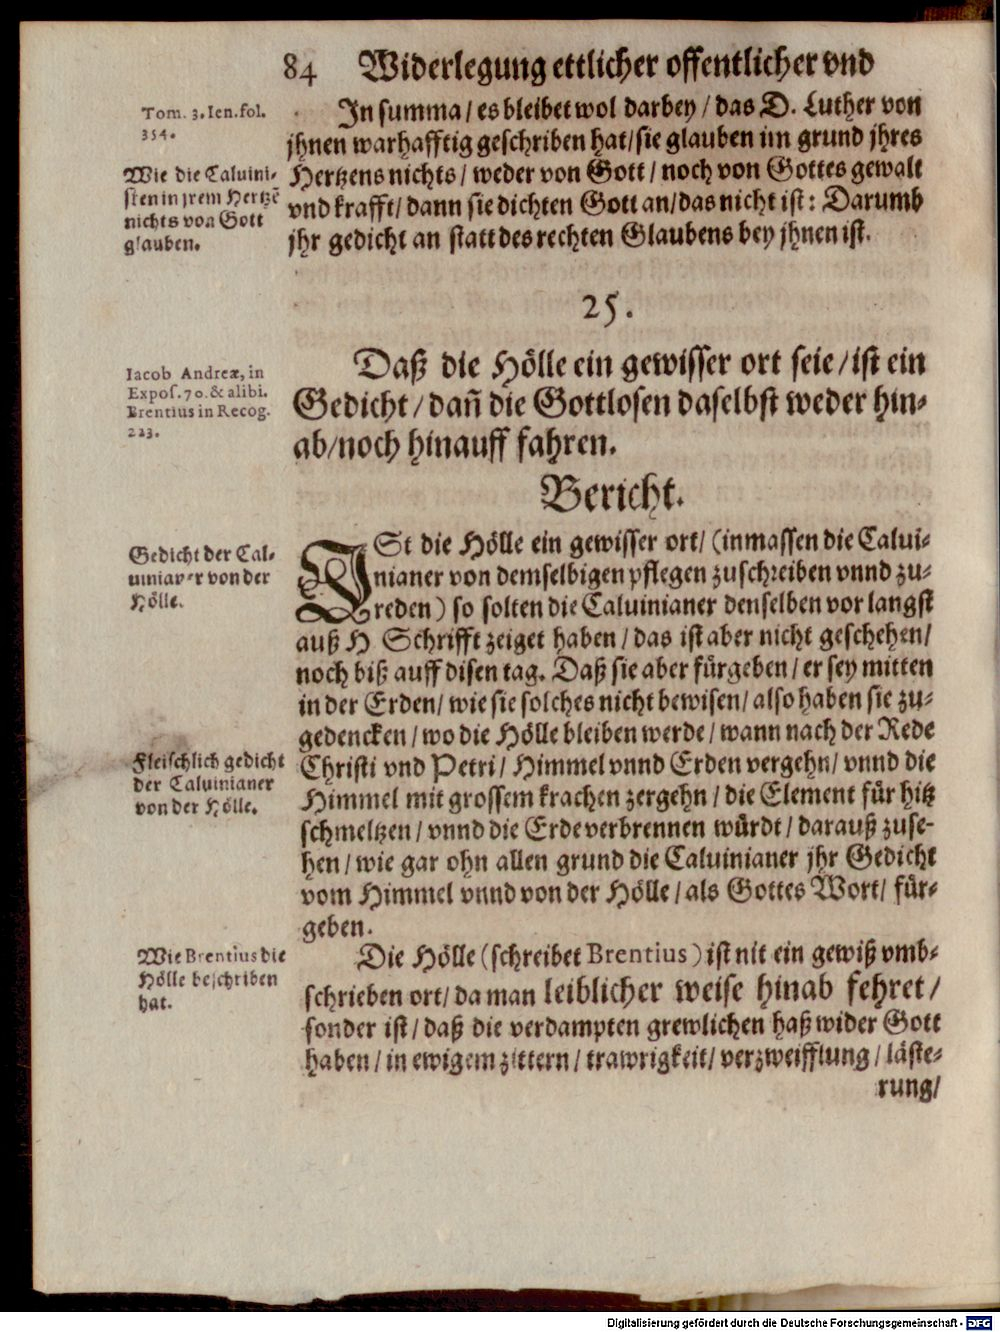 84 Widerlegung ettlicher offentlicher vnd
Tom. 3. Ien. fol.
354.
Wie die Caluini-
sten in jrem Hertzē
nichts von Gott
glauben.
In summa / es bleibet wol darbey / das D. Luther von
jhnen warhafftig geschriben hat / sie glauben im grund jhres
Hertzens nichts / weder von Gott / noch von Gottes gewalt
vnd krafft / dann sie dichten Gott an / das nicht ist: Darumb
jhr gedicht an statt des rechten Glaubens bey jhnen ist.
25.
Iacob Andreæ, in
Expos. 70. & alibi.
Brentius in Recog.
223.
Daß die Hölle ein gewisser ort seie / ist ein
Gedicht / dañ die Gottlosen daselbst weder hin-
ab / noch hinauff fahren.
Bericht.
Gedicht der Cal-
uinianer von der
Hölle.
ISt die Hölle ein gewisser ort / (inmassen die Calui-
nianer von demselbigen pflegen zuschreiben vnnd zu-
reden) so solten die Caluinianer denselben vor langst
auß H Schrifft zeiget haben / das ist aber nicht geschehen /
noch biß auff disen tag. Daß sie aber fürgeben / er sey mitten
in der Erden / wie sie solches nicht bewisen / also haben sie zu-
gedencken / wo die Hölle bleiben werde / wann nach der Rede
Christi vnd Petri / Himmel vnnd Erden vergehn / vnnd die
Himmel mit grossem krachen zergehn / die Element für hitz
schmeltzen / vnnd die Erde verbrennen würdt / darauß zuse-
hen / wie gar ohn allen grund die Caluinianer jhr Gedicht
vom Himmel vnnd von der Hölle / als Gottes Wort / für-
geben.
Fleischlich gedicht
der Caluinianer
von der Hölle.
Wie Brentius die
Hölle beschriben
hat.
Die Hölle (schreibet Brentius) ist nit ein gewiß vmb-
schrieben ort / da man leiblicher weise hinab fehret /
sonder ist / daß die verdampten grewlichen haß wider Gott
haben / in ewigem zittern / trawrigkeit / verzweifflung / läste-
rung /
Digitalisierung gefördert durch die Deutsche Forschungsgemeinschaft - DFG